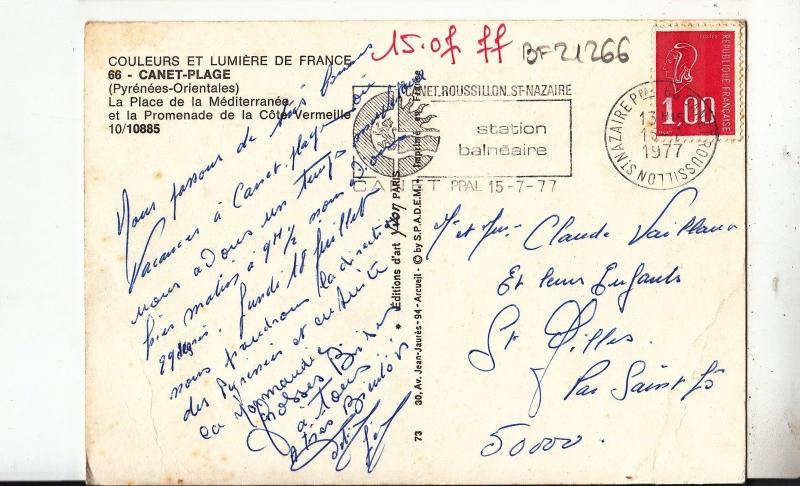 15.07 ff
BF21266
COULEURS ET LUMIÈRE DE FRANCE
66 - CANET-PLAGE
(Pyrénées-Orientales)
La Place de la Méditerranée
et la Promenade de la Côte Vermeille
10/10885
CANET.ROUSSILLON.ST-NAZAIRE
station
balnéaire
CANET PPAL 15-7-77
1977
ROUSSILLON ST NAZAIRE
RÉPUBLIQUE FRANÇAISE
1,00
Nous passons de très bonnes
Vacances à Canet plage
nous avons un temps magnifique
hier matin à 9H½ nous avions
29 degrés. Lundi 18 Juillet
nous prendrons la direction
des Pyrénées et ensuite
la Normandie
Grosses Bises
à tous
A très Bientôt
73 30, Av. Jean-Jaurès - 94 - Arcueil - © by S.P.A.D.E.M. - Imprimé en France
* Éditions d'art yvon PARIS *
Mr et Mme Claude Vaillant
Et Leurs Enfants
St Gilles
Par Saint Lô
50000.